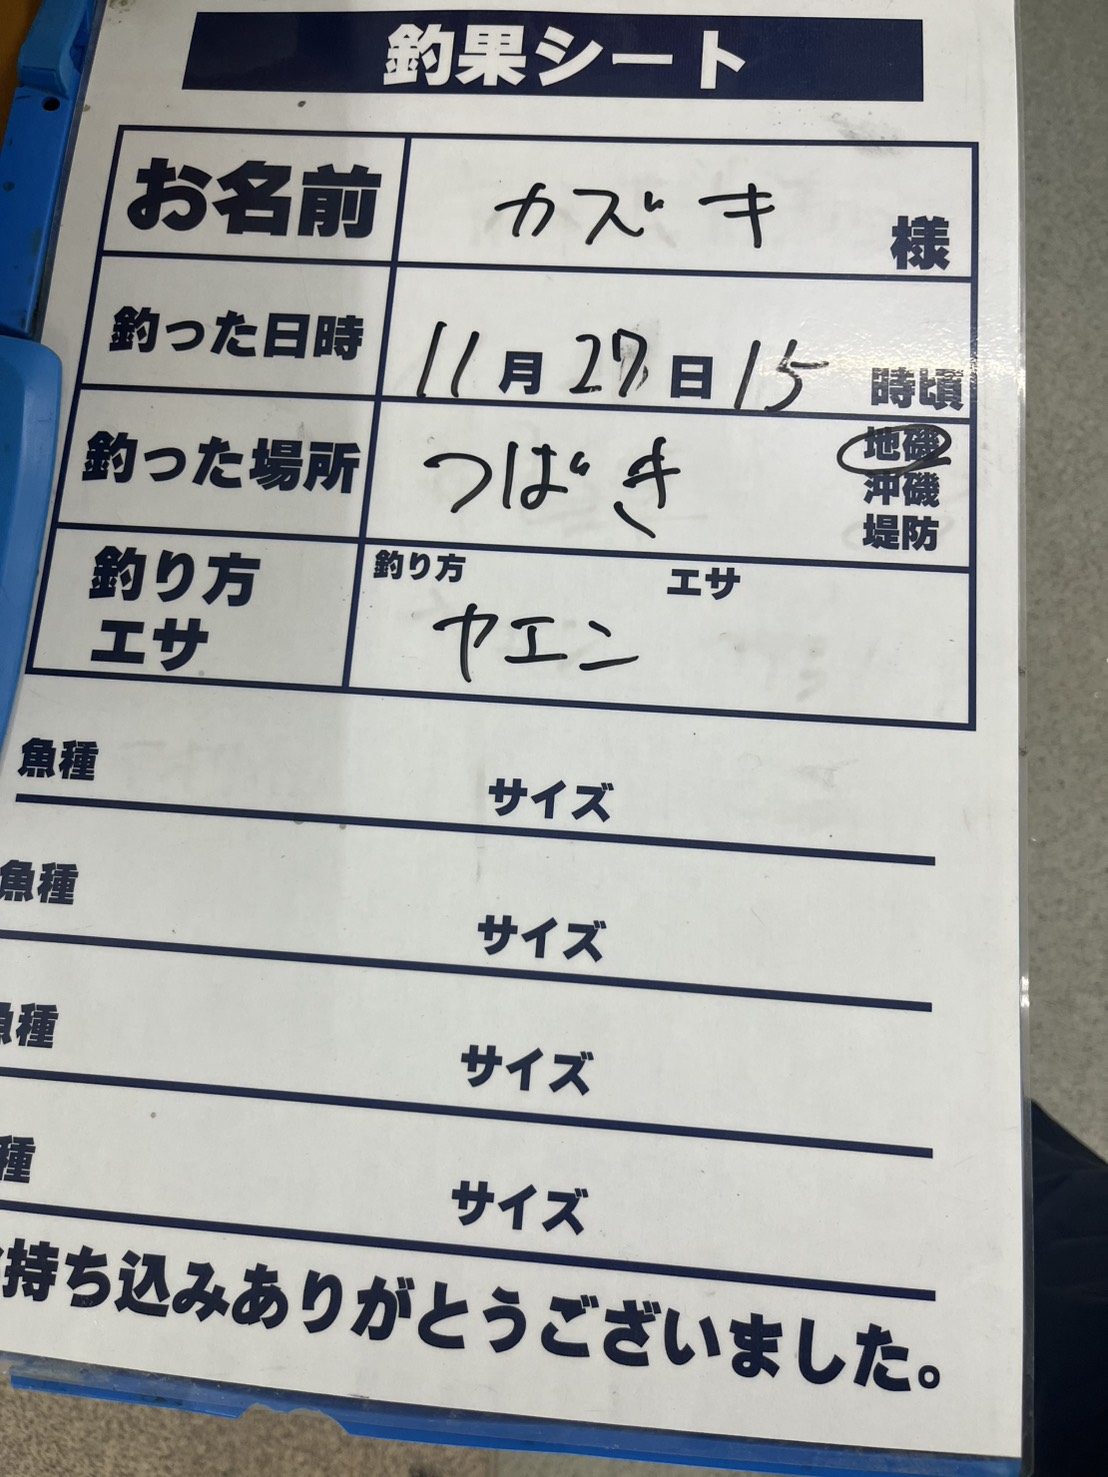 釣果シート
お名前 カズキ 様
釣った日時 11月27日15時頃
釣った場所 つばき 地磯
沖磯
堤防
釣り方
エサ
釣り方 エサ
ヤエン
魚種 サイズ
魚種 サイズ
魚種 サイズ
種 サイズ
持ち込みありがとうございました。